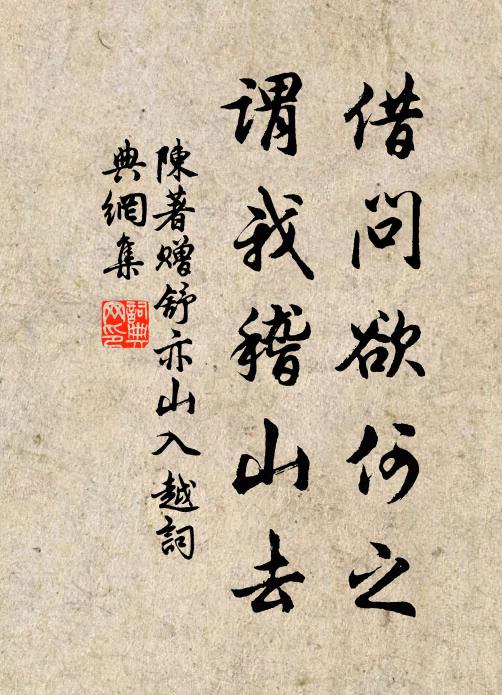 借问欲何之
谓我稽山去
陳著赠舒亦山入越詞
典網集
詞典網印